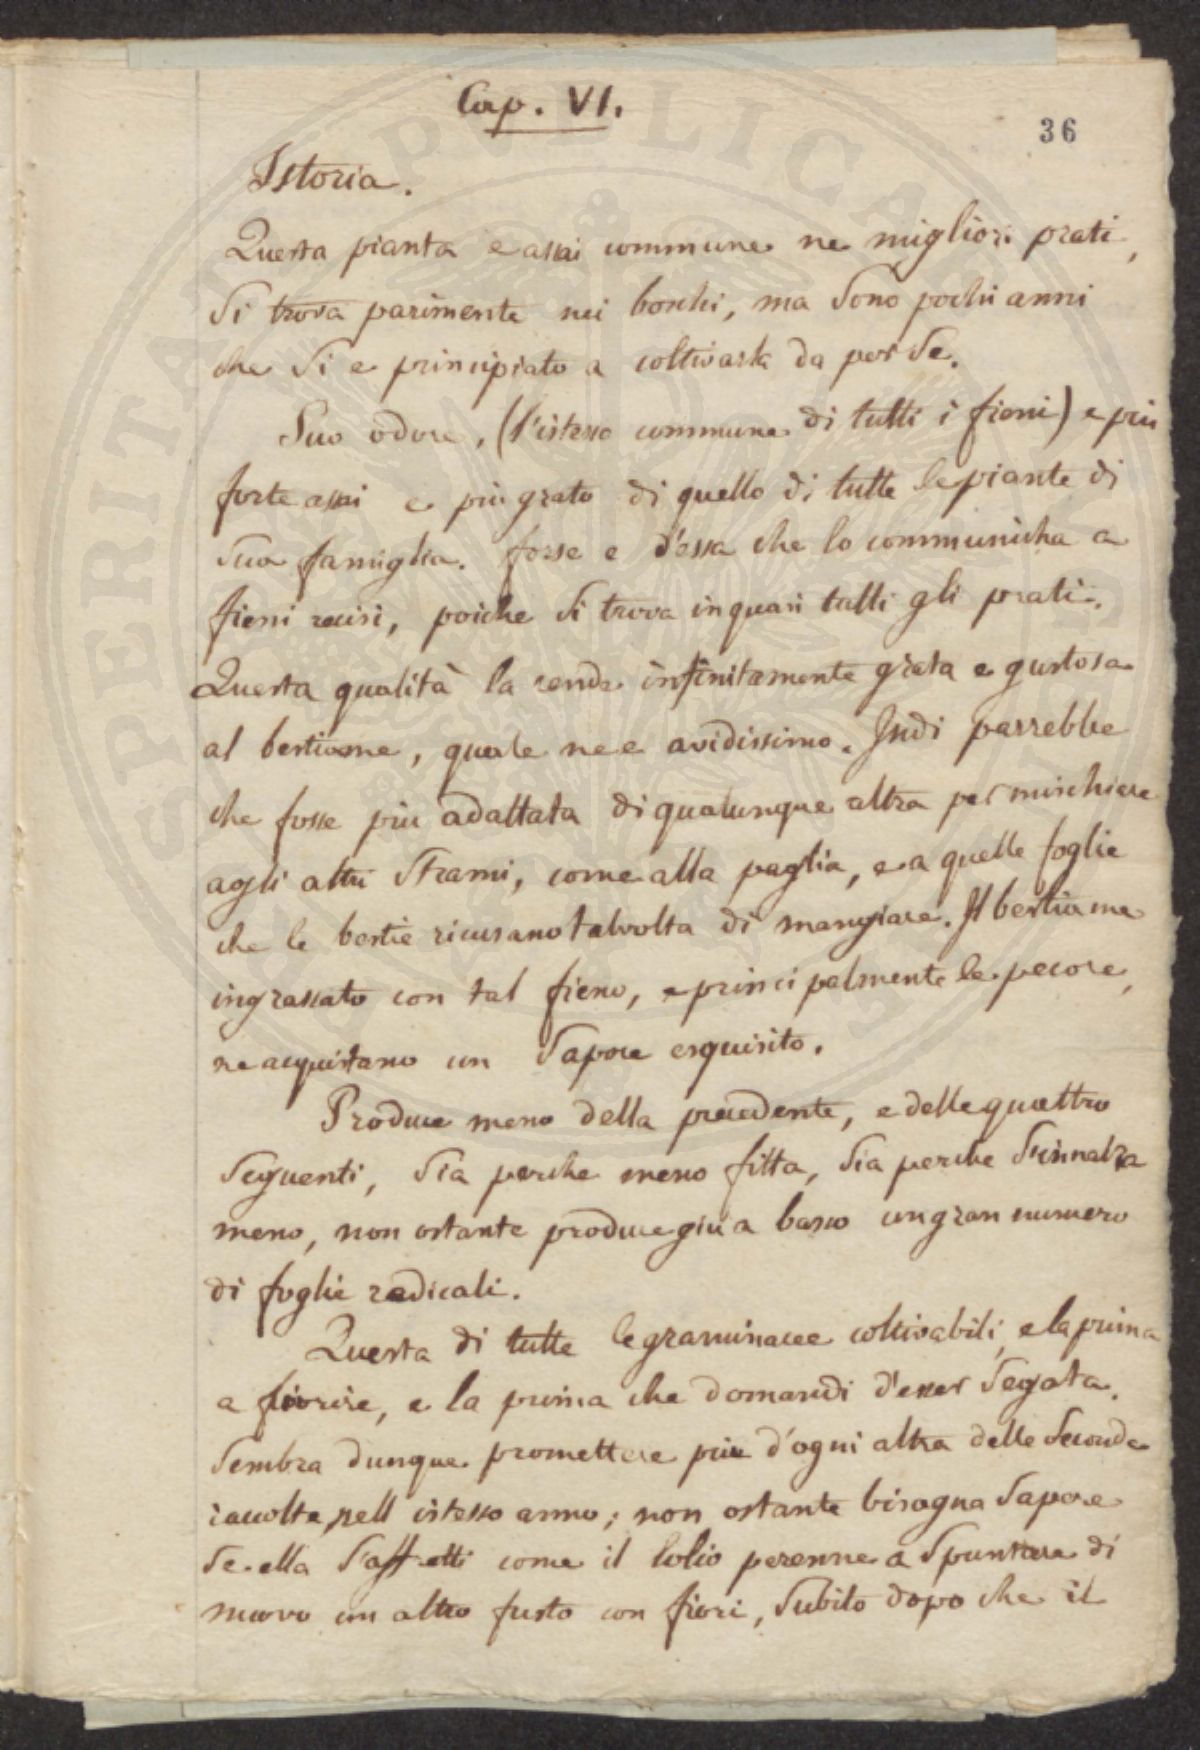 Cap. VI.
36
Istoria.
Questa pianta e assai commune ne migliori prati,
Si trova parimente nei boschi, ma Sono pochi anni
che Si e principiato a coltivarla da per Se.
Suo odore, (l'istesso commune di tutti i fieni) e piu
forte assai e piu grato di quello di tutte le piante di
Sua famiglia. forse e d'essa che lo communicha a
fieni recisi, poiche Si trova in quasi tutti gli prati.
Questa qualità la rende infinitamente grata e gustosa
al bestiame, quale ne e avidissimo. Indi parrebbe
che fosse piu adattata di qualunque altra per mischiare
agli altri Strami, come alla paglia, e a quelle foglie
che le bestie ricusano talvolta di mangiare. Il bestiame
ingrassato con tal fieno, e principalmente le pecore,
ne acquistano un Sapore esquisito.
Produce meno della precedente, e delle quattro
Seguenti, Sia perche meno fitta, Sia perche S'innalza
meno, non ostante produce giu a basso un gran numero
di foglie radicali.
Questa di tutte le graminacee coltivabili, e la prima
a fiorire, e la prima che domandi d'esser Segata.
Sembra dunque promettere piu d'ogni altra delle Seconde
raccolte nell istesso anno; non ostante bisogna Sapere
Se ella S'affretti come il lolio perenne a Spuntare di
nuovo un altro fusto con fiori, Subito dopo che il
SPERITAT PUBLICAE